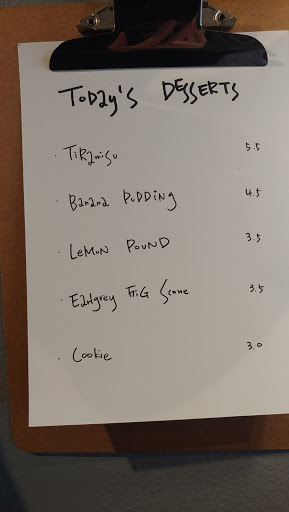 Today's DESSERTS
· Tiramisu 5.5
· Banana PUDDiNg 4.5
· LEMON POUND 3.5
· Earlgrey FiG Scone 3.5
· Cookie 3.0